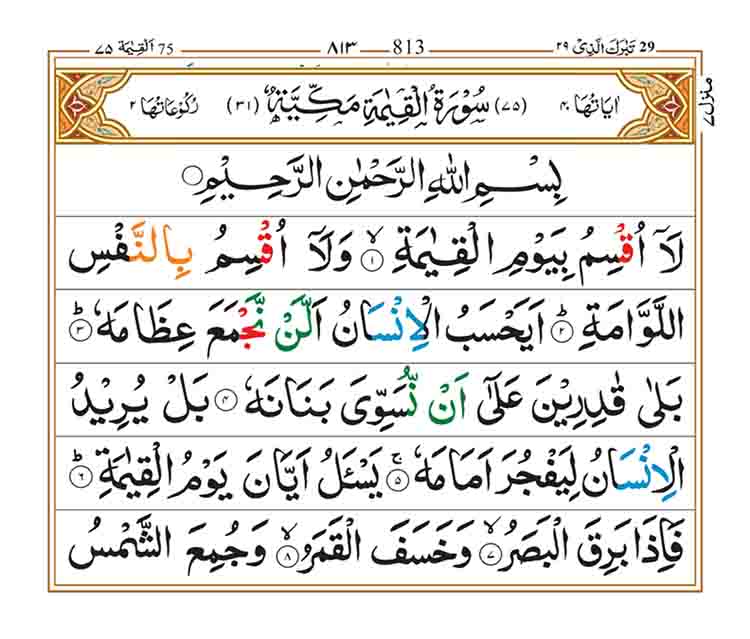 29 تَبٰرَكَ الَّذِیْ ۲۹ 813 ۸۱۳ 75 اَلْقِیٰمَة ۷۵
منزل ۷
اٰیَاتُهَا ۴۰ (۷۵) سُوْرَةُ الْقِیٰمَةِ مَكِّیَّةٌ (۳۱) رُكُوْعَاتُهَا ۲
بِسْمِ اللّٰهِ الرَّحْمٰنِ الرَّحِیْمِ
لَاۤ اُقْسِمُ بِیَوْمِ الْقِیٰمَةِۙ ۱ وَلَاۤ اُقْسِمُ بِالنَّفْسِ
اللَّوَّامَةِؕ ۲ اَیَحْسَبُ الْاِنْسَانُ اَلَّنْ نَّجْمَعَ عِظَامَهٗؕ ۳
بَلٰی قٰدِرِیْنَ عَلٰۤی اَنْ نُّسَوِّیَ بَنَانَهٗ ۴ بَلْ یُرِیْدُ
الْاِنْسَانُ لِیَفْجُرَ اَمَامَهٗۚ ۵ یَسْـَٔلُ اَیَّانَ یَوْمُ الْقِیٰمَةِؕ ۶
فَاِذَا بَرِقَ الْبَصَرُۙ ۷ وَخَسَفَ الْقَمَرُۙ ۸ وَجُمِعَ الشَّمْسُ